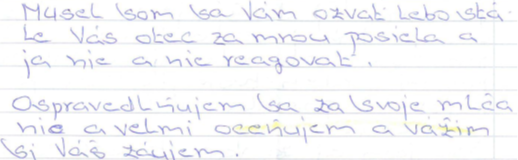 Musel som sa Vám ozvať lebo stá-
le Vás otec za mnou posiela a
ja nie a nie reagovať.
Ospravedlňujem sa za svoje mlča
nie a velmi oceňujem a vážim
si Váš záujem.